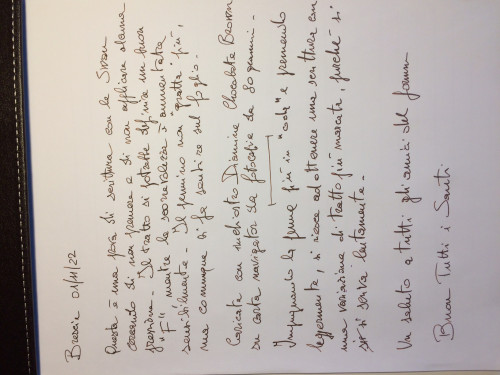 Brescia 01/11/22
Questa è una prova di scrittura con la Swan
cercando di non premere e di non applicare alcuna
pressione. Il tratto si potrebbe definire un buon
"F" mentre la scorrevolezza è aumentata
sensibilmente. Il pennino non "gratta" più,
ma comunque si fa sentire sul foglio.
Caricata con inchiostro Diamine Chocolate Brown
su carta navigator da fotocopie da 80 grammi.
Impugnando la penna più in "coda" e premendo
leggermente, si riesce ad ottenere una scrittura con
una variazione di tratto più marcata, purché si
scriva lentamente.
Un saluto a tutti gli amici del forum
Buon Tutti i Santi